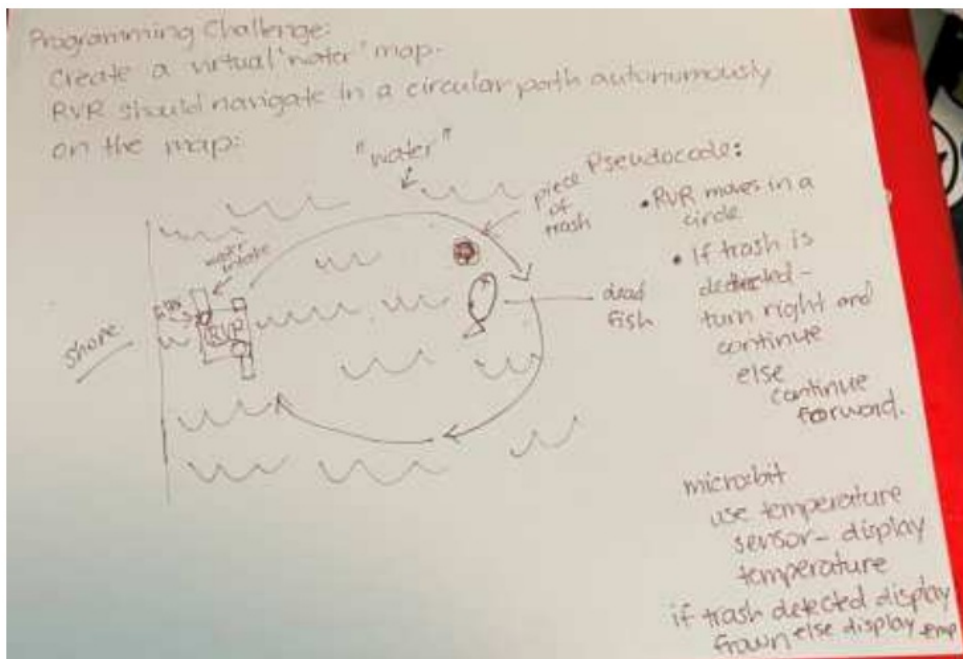 Programming Challenge:
Create a virtual "water" map.
RVR should navigate in a circular path autonomously
on the map:
"water"
piece
of
trash
water
intake
RVR
Shore
dead
fish
Pseudocode:
• RVR moves in a
circle
• If trash is
detected -
turn right and
continue
else
continue
forward.
micro:bit
use temperature
sensor - display
temperature
if trash detected display
frown else display temp